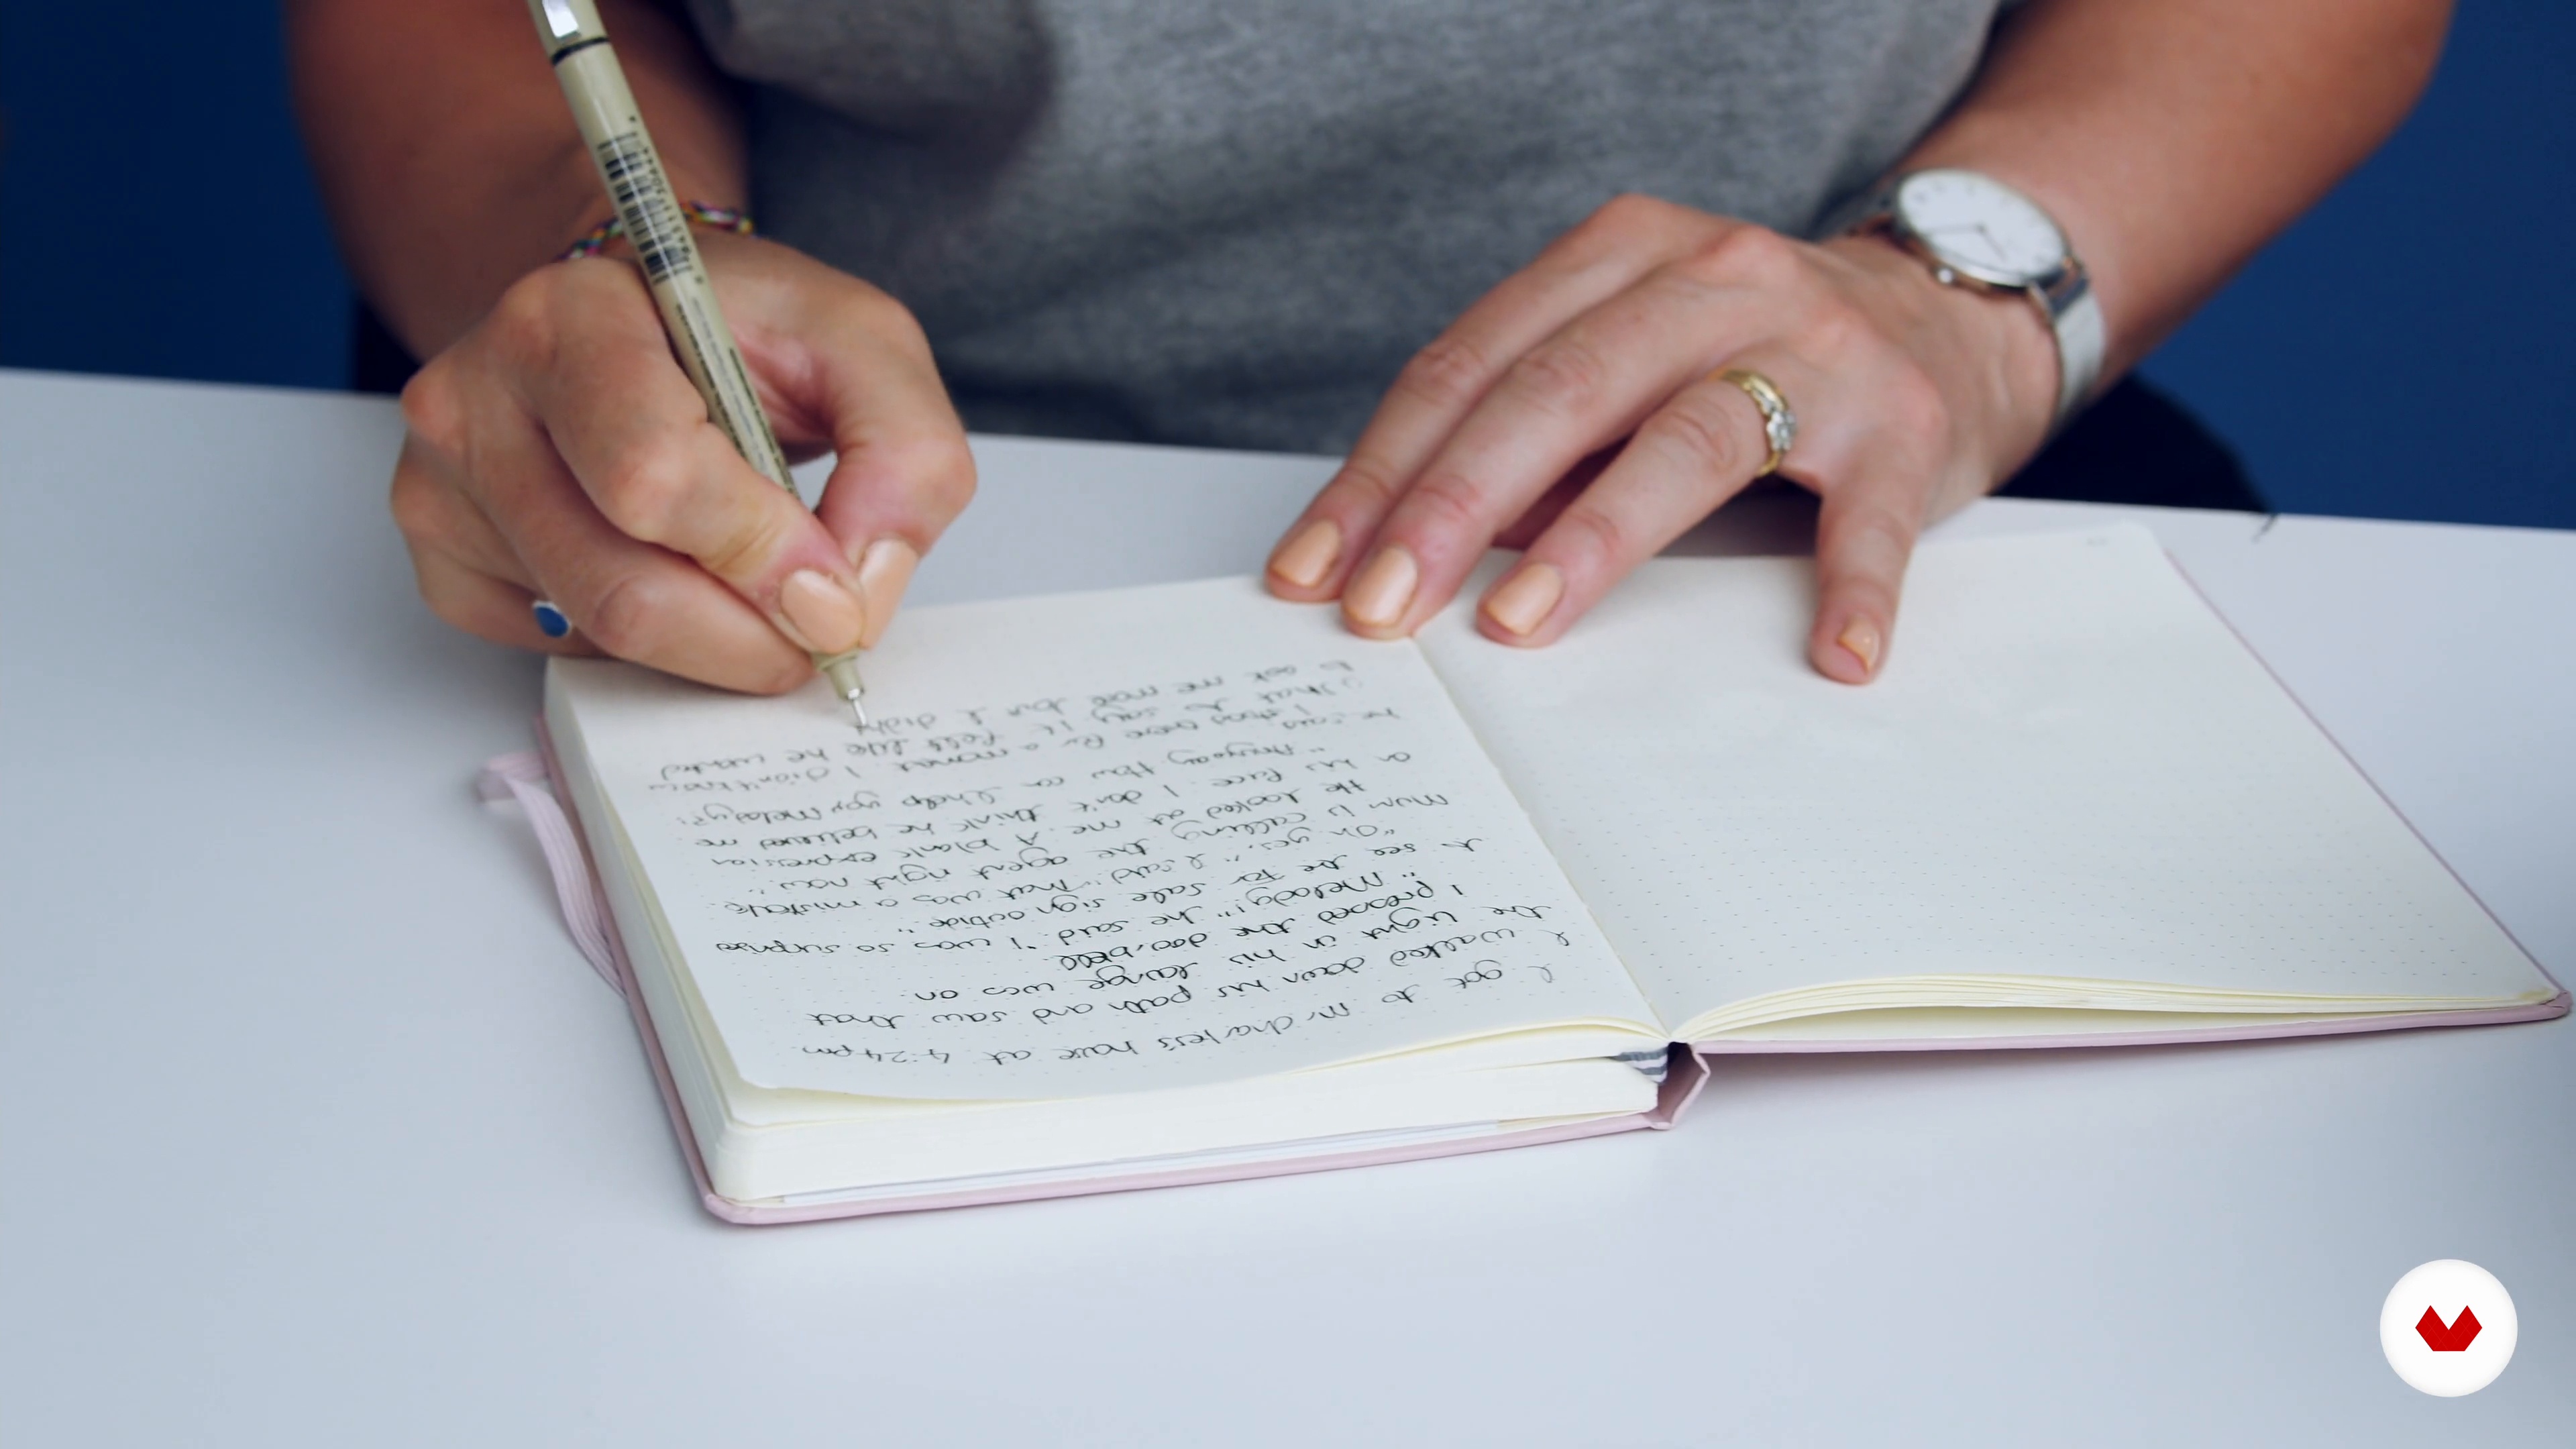 I got to Mr Charles's house at 4:24pm.
I walked down his path and saw that
the light in his lounge was on.
I pressed the doorbell.
"Melody!" he said "I was so surprise
to see the for sale sign outside."
"Oh yes," I said, "That was a mistake.
Mum is calling the agent right now."
He looked at me. A blank expression
on his face. I don't think he believed me
"Anyway How can I help you Melody?"
he said
I stood there for a moment I didn't know
what to say it felt like he wanted
to ask me more but I didn't